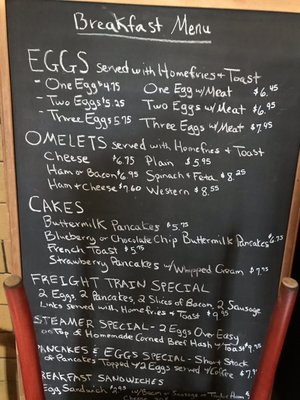 Breakfast Menu
EGGS served with Homefries & Toast
- One Egg $4.75 One Egg w/Meat $6.45
- Two Eggs $5.25 Two Eggs w/Meat $6.95
- Three Eggs 5.75 Three Eggs w/Meat $7.45
OMELETS served with Homefries & Toast
Cheese $6.75 Plain $5.95
Ham or Bacon $6.95 Spinach & Feta $8.25
Ham & Cheese $7.60 Western $8.55
CAKES
Buttermilk Pancakes $5.75
Blueberry or Chocolate Chip Buttermilk Pancakes $6.75
French Toast $5.75
Strawberry Pancakes w/Whipped Cream $7.95
FREIGHT TRAIN SPECIAL
2 Eggs, 2 Pancakes, 2 Slices of Bacon, 2 Sausage
Links served with Homefries & Toast $9.95
STEAMER SPECIAL - 2 Eggs Over Easy
on Top of Homemade Corned Beef Hash w/Toast $9.55
PANCAKES & EGGS SPECIAL - Short Stack
of Pancakes Topped w/2 Eggs served w/Coffee $7.
BREAKFAST SANDWICHES
Egg Sandwich w/Bacon Sausage